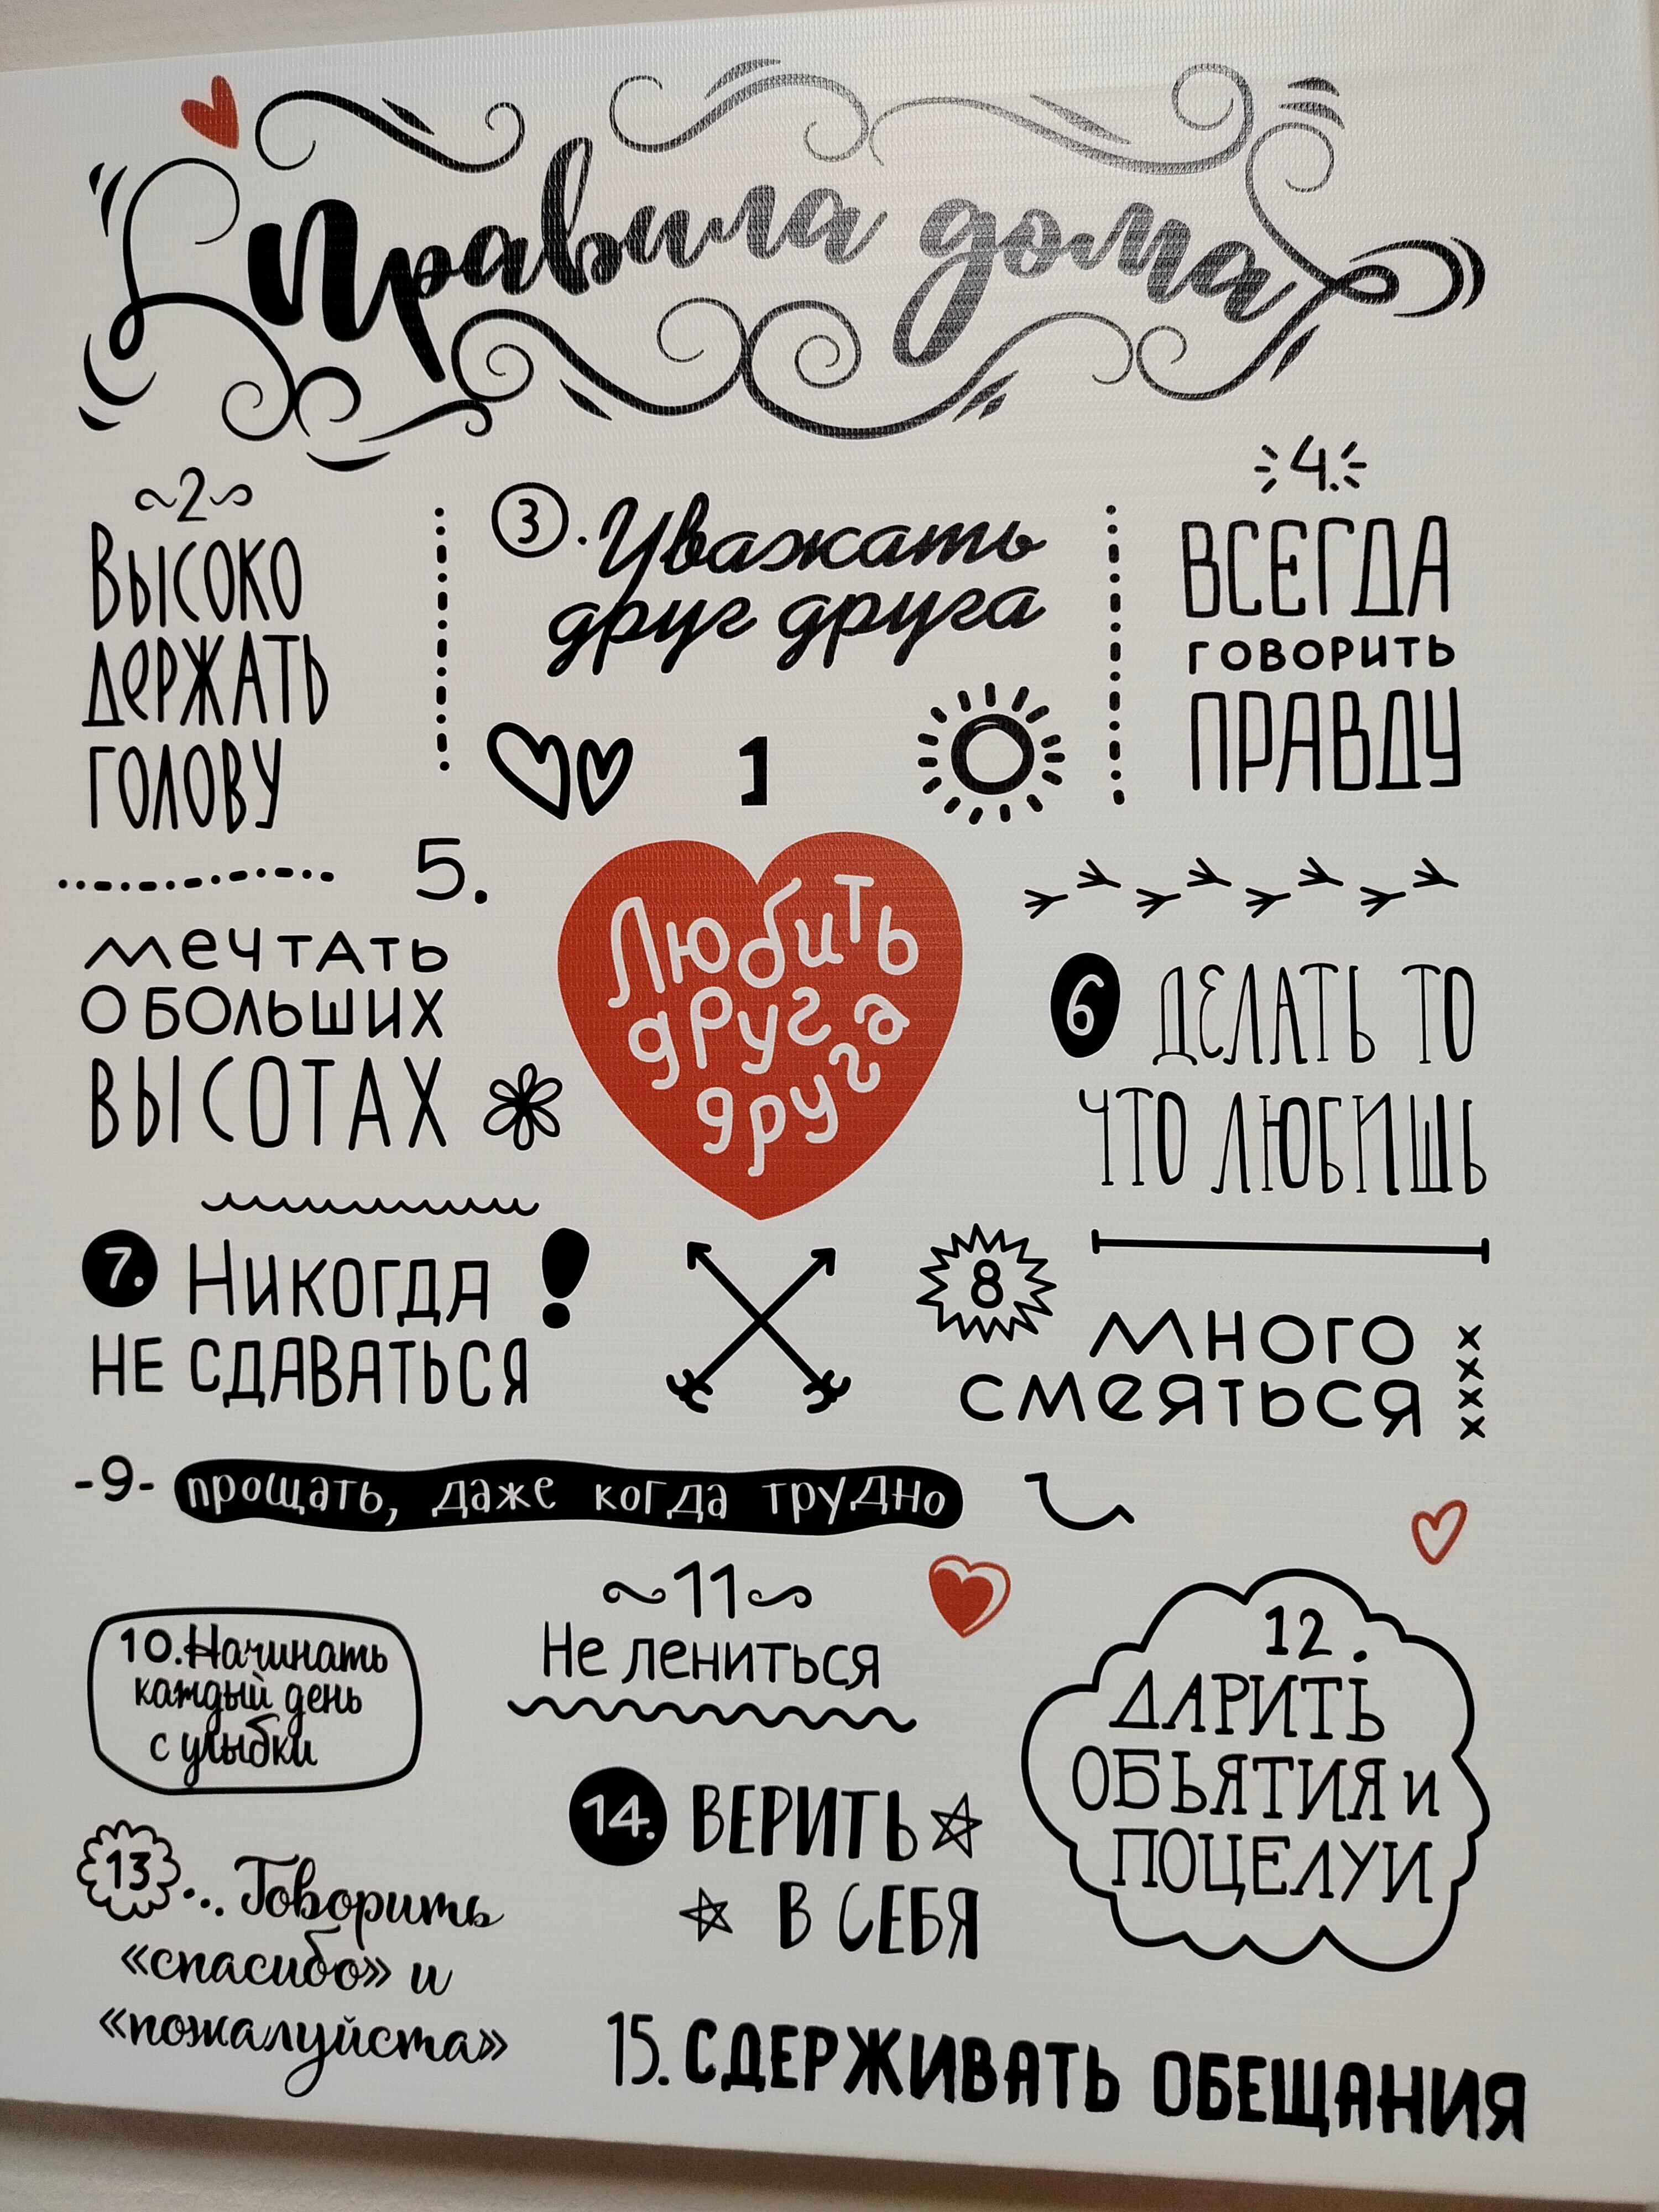 Правила дома
2
Высоко
держать
голову
3. Уважать
друг друга
4.
ВСЕГДА
говорить
ПРАВДУ
1
Любить
друг
друга
5.
мечтать
о больших
ВЫСОТАХ
6 ДЕЛАТЬ ТО
ЧТО ЛЮБИШЬ
7. Никогда !
НЕ СДАВАТЬСЯ
8
много
смеяться
-9- прощать, даже когда трудно
10. Начинать
каждый день
с улыбки
11
Не лениться
12.
ДАРИТЬ
ОБЬЯТИЯ и
ПОЦЕЛУИ
13... Говорить
«спасибо» и
«пожалуйста»
14. ВЕРИТЬ
В СЕБЯ
15. СДЕРЖИВАТЬ ОБЕЩАНИЯ